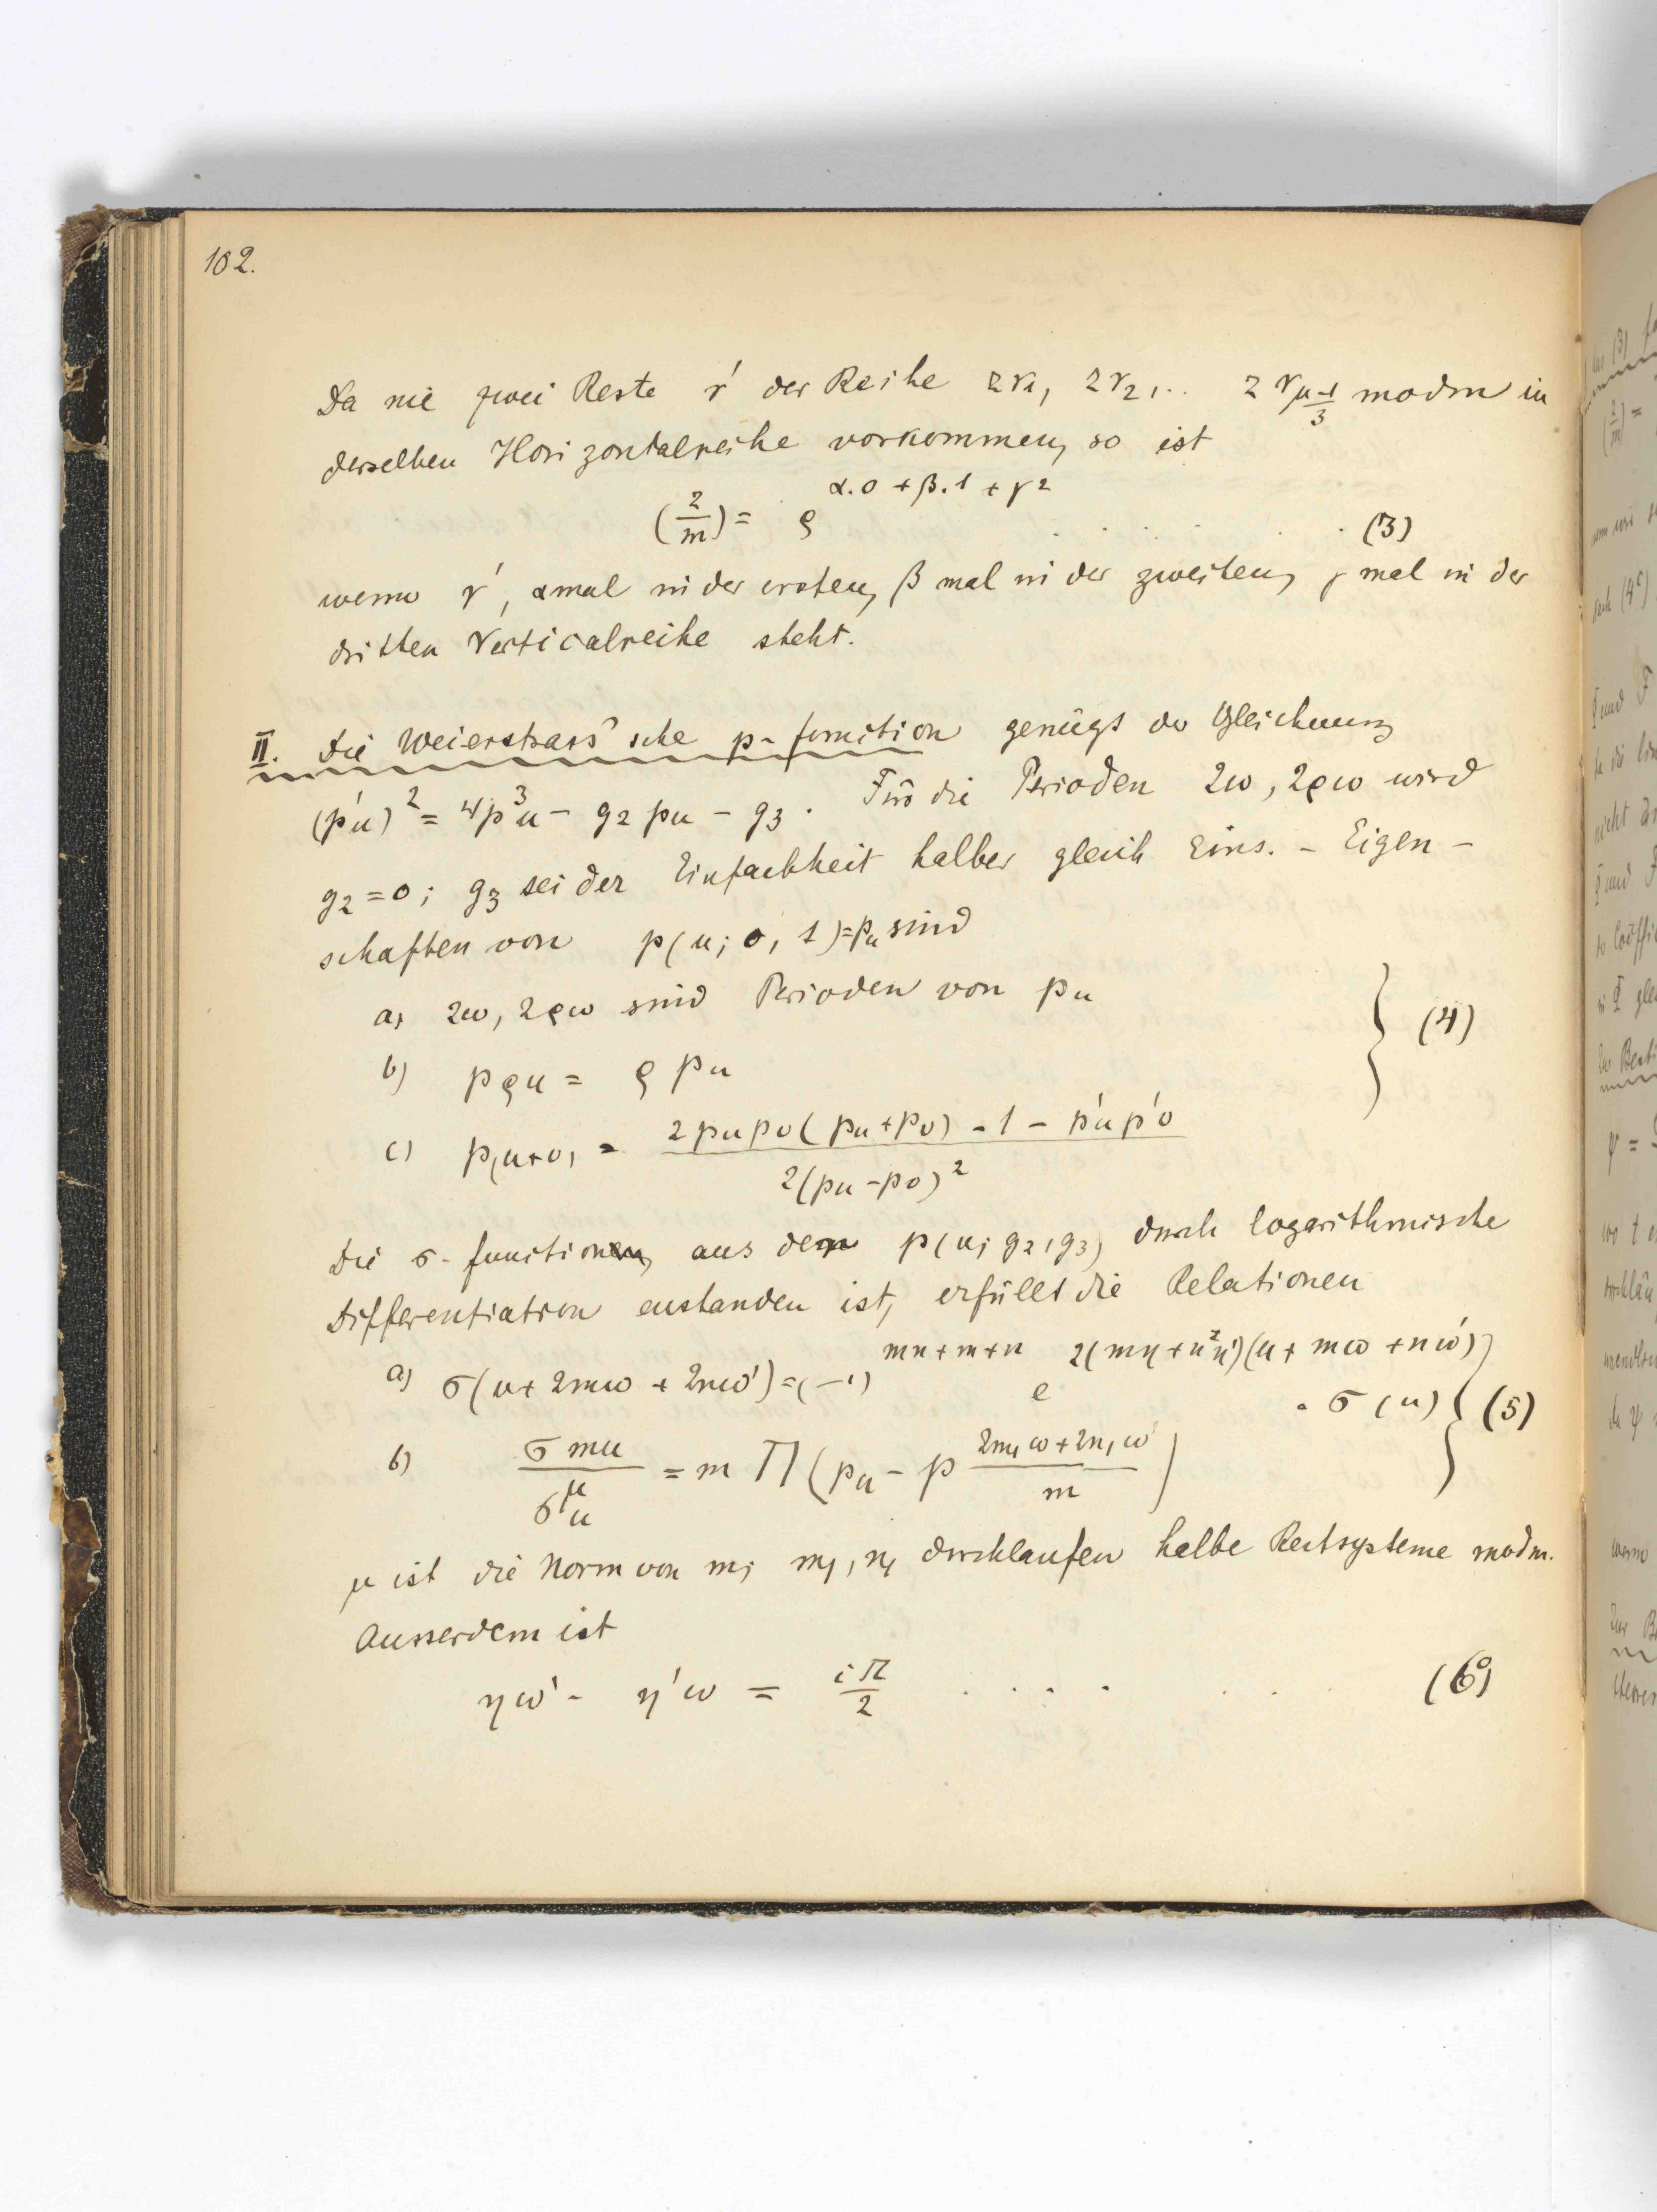 102.
Da nie zwei Reste r' der Reihe 2r₁, 2r₂, .. 2 r_{\frac{μ-1}{3}} mod m in
derselben Horizontalreihe vorkommen, so ist
(\frac{2}{m}) = ϱ^{α.0 + β.1 + γ2} . . . . (3)
wenn r', α mal in der ersten, β mal in der zweiten, γ mal in der
dritten Verticalreihe steht.
II. Die Weierstrass'sche p-function genügt der Gleichung
(p'u)² = 4p³u - g₂ pu - g₃. Für die Perioden 2ω, 2ϱω wird
g₂ = 0; g₃ sei der Einfachheit halber gleich Eins. - Eigen-
schaften von p(u; 0, 1) = pu sind
a) 2ω, 2ϱω sind Perioden von pu
b) pϱu = ϱ pu
c) p(u+v) = \frac{2pu pv(pu+pv) - 1 - p'u p'v}{2(pu - pv)²} } (4)
Die σ-function, aus der p(u; g₂, g₃) durch logarithmische
Differentiation enstanden ist, erfüllt die Relationen
a) σ(u + 2mω + 2nω') = (-1)^{mn+m+n} e^{2(mη+nη')(u + mω + nω')} . σ(u)
b) \frac{σ mu}{σ^μ u} = m Π (pu - p \frac{2m₁ω + 2n₁ω'}{m}) } (5)
μ ist die Norm von m; m₁, n₁ durchlaufen halbe Restsysteme mod m.
Ausserdem ist
ηω' - η'ω = \frac{iπ}{2} . . . . . . (6)